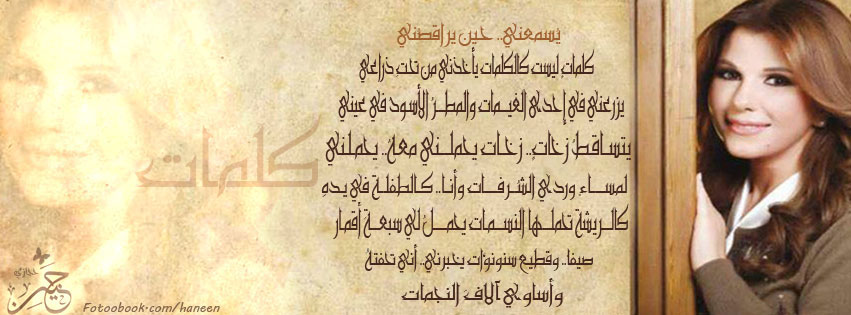 يسمعني.. حين يراقصني
كلمات ليست كالكلمات يأخذني من تحت ذراعي
يزرعني في إحدى الغيمات والمطر الأسود في عيني
يتساقط زخاتٍ.. زخات يحملني معه.. يحملني
لمساء وردي الشرفات وأنا.. كالطفلة في يدهِ
كالريشة تحملها النسمات يحمل لي سبعة أقمار
صيفا.. وقطيع سنونوات يخبرني.. أني تحفته
وأساوي آلاف النجمات
كلمات
حجازي
Fotoobook.com/haneen